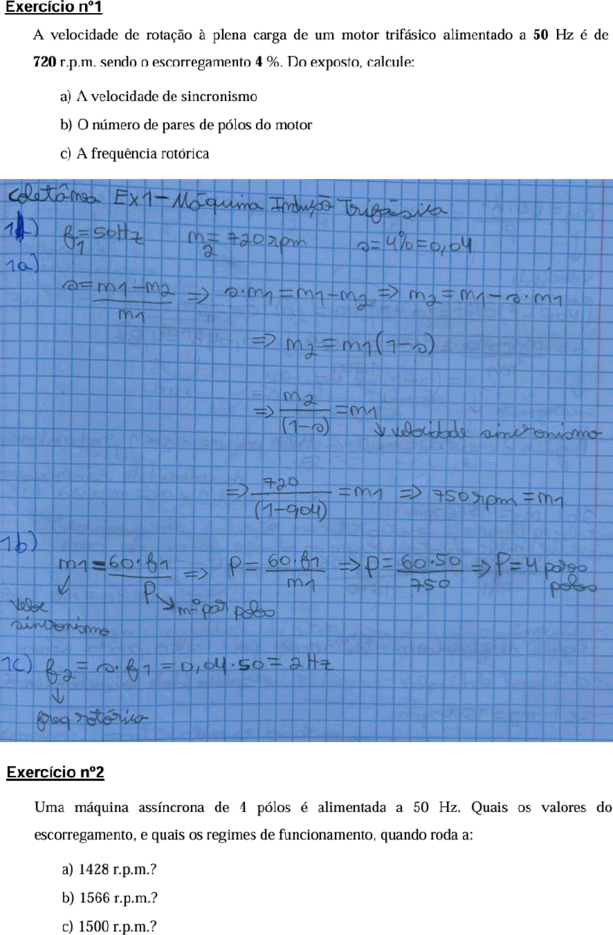 Exercício nº1
A velocidade de rotação à plena carga de um motor trifásico alimentado a 50 Hz é de
720 r.p.m. sendo o escorregamento 4 %. Do exposto, calcule:
a) A velocidade de sincronismo
b) O número de pares de pólos do motor
c) A frequência rotórica
Coletânea Ex1 - Máquina Indução Trifásica
1) f1 = 50Hz n2 = 720rpm s = 4% = 0,04
1a)
s = (n1 - n2)/n1 => s·n1 = n1 - n2 => n2 = n1 - s·n1
=> n2 = n1(1-s)
=> n2/(1-s) = n1
↓ velocidade sincronismo
=> 720/(1-0,04) = n1 => 750rpm = n1
1b)
n1 = 60·f1/P => P = 60·f1/n1 => P = 60·50/750 => P = 4 pares
polos
veloc
sincronismo
nº par polos
1c) f2 = s·f1 = 0,04·50 = 2Hz
↓
freq rotórica
Exercício nº2
Uma máquina assíncrona de 4 pólos é alimentada a 50 Hz. Quais os valores do
escorregamento, e quais os regimes de funcionamento, quando roda a:
a) 1428 r.p.m.?
b) 1566 r.p.m.?
c) 1500 r.p.m.?